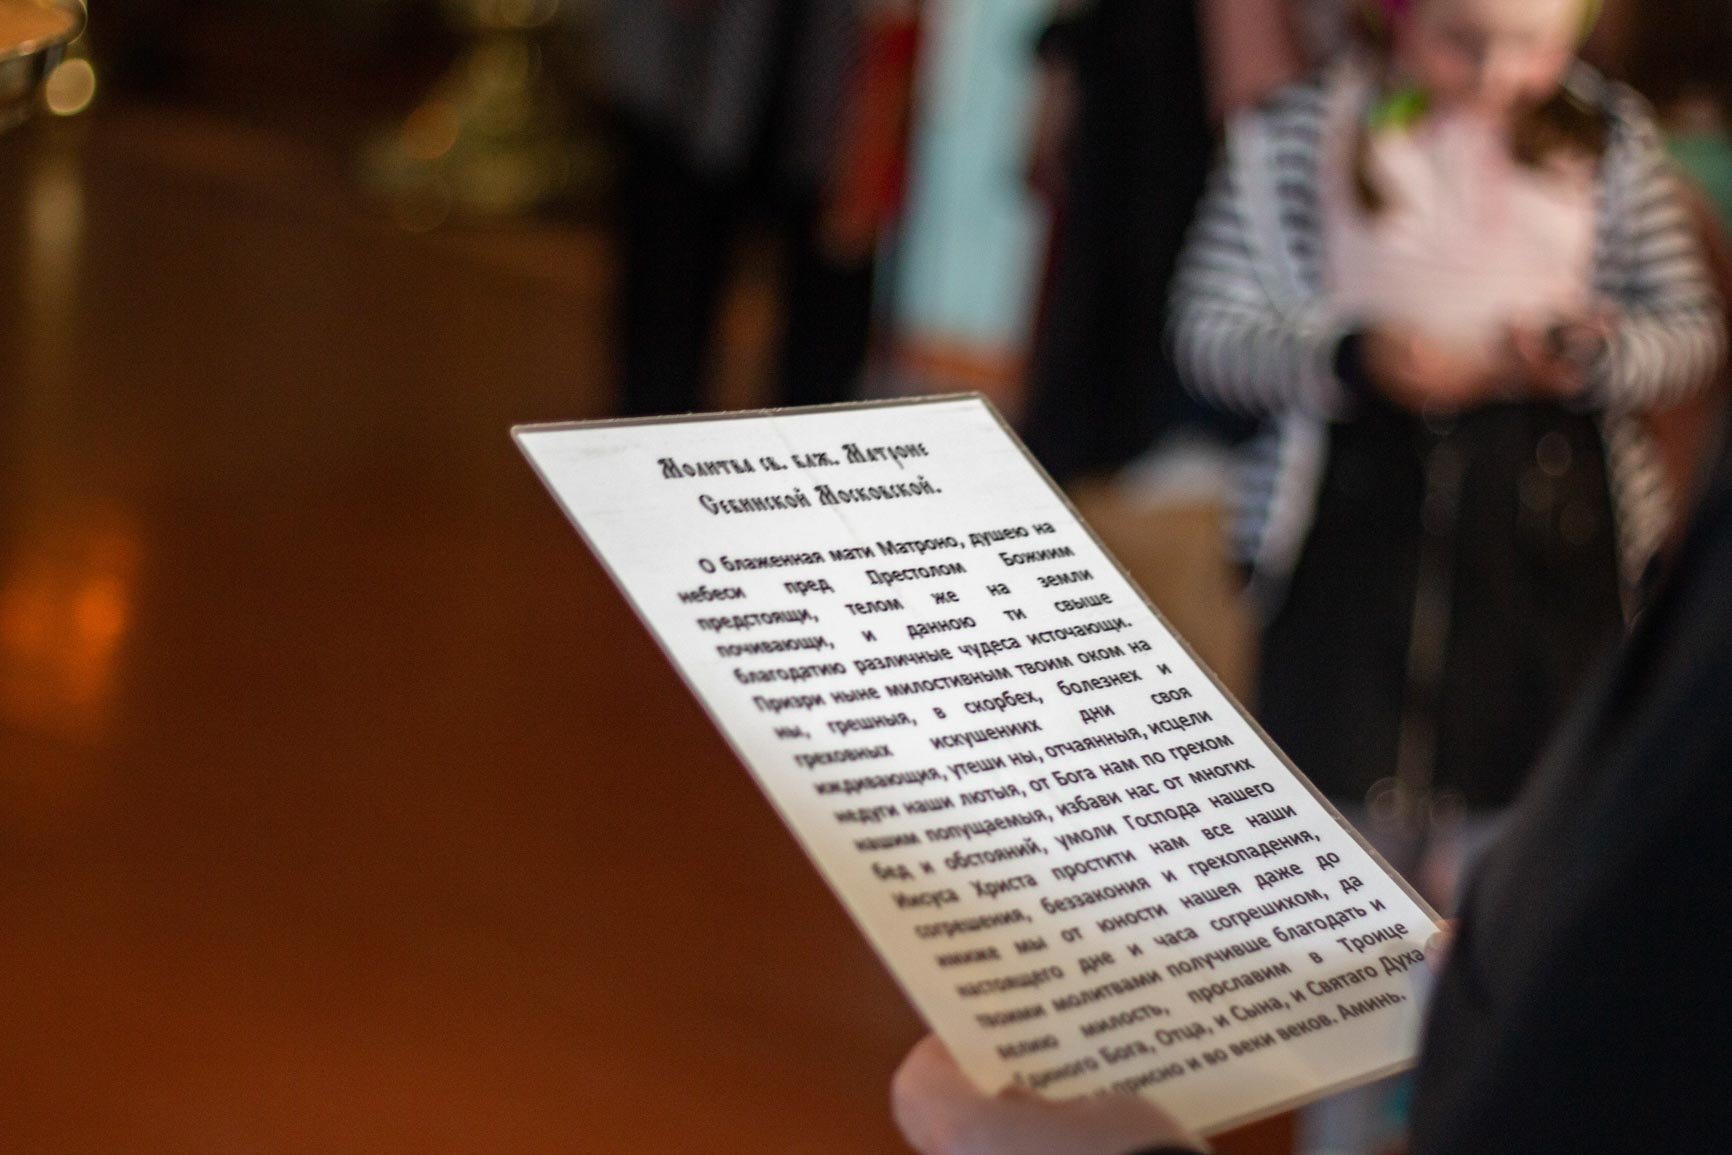 Молитва св. блж. Матроне
Себинской Московской.
О блаженная мати Матроно, душею на
небеси пред Престолом Божиим
предстоящи, телом же на земли
почивающи, и данною ти свыше
благодатию различные чудеса источающи.
Призри ныне милостивным твоим оком на
ны, грешныя, в скорбех, болезнех и
греховных искушениих дни своя
иждивающия, утеши ны, отчаянныя, исцели
недуги наши лютыя, от Бога нам по грехом
нашим попущаемыя, избави нас от многих
бед и обстояний, умоли Господа нашего
Иисуса Христа простити нам все наши
согрешения, беззакония и грехопадения,
имиже мы от юности нашея даже до
настоящего дне и часа согрешихом, да
твоими молитвами получивше благодать и
велию милость, прославим в Троице
Единого Бога, Отца, и Сына, и Святаго Духа
и присно и во веки веков. Аминь.